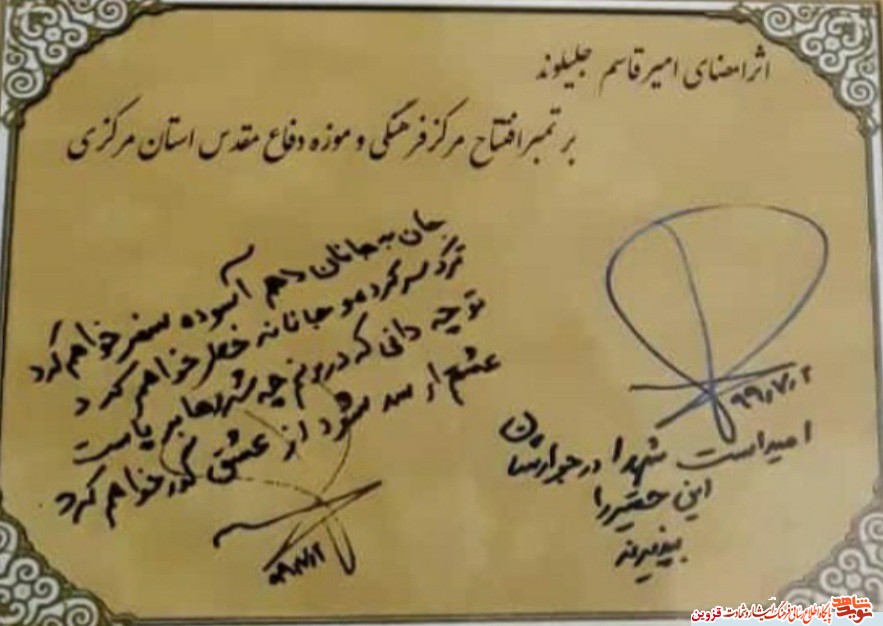 اثر امضای امیر قاسم جلیلوند
بر تمبر افتتاح مرکز فرهنگی و موزه دفاع مقدس استان مرکزی
جان به جانان دهم آسوده سفر خواهم کرد
ترک سر کرده و جانانه خطر خواهم کرد
تو چه دانی که درونم چه شررها برپاست
عشق ار سد شود از عشق گذر خواهم کرد
۹۹/۷/۲
امید است شهدا در جوارشان
این حقیر را
بپذیرند
۹۹/۷/۲
نوید شاهد
پایگاه اطلاع رسانی فرهنگ ایثار و شهادت قزوین